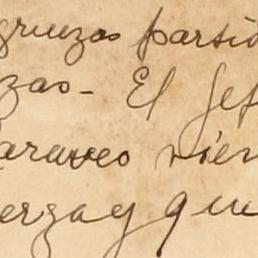 gruzas partid
zas- El Jef
araveo vien
erza y que